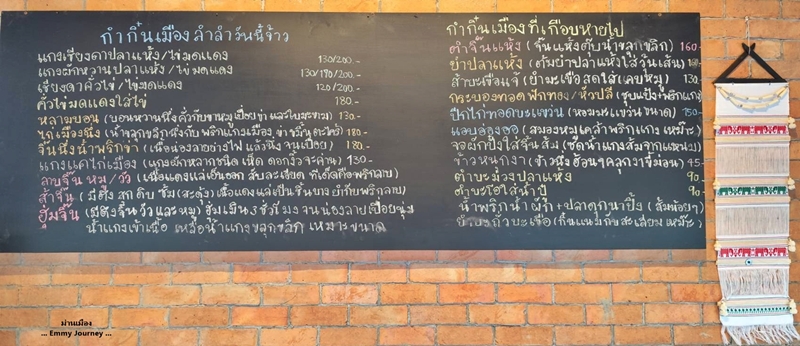 กำกิ๋นเมืองลำลำวันนี้จ้าว
แกงเซียงดาปลาแห้ง/ไข่มดแดง 130/200.-
แกงผักหวานปลาแห้ง/ไข่มดแดง 130/190/200.-
เซียงดาคั่วไข่/ไข่มดแดง 120/200.-
คั่วไข่มดแดงใส่ไข่ 180.-
หลามบอน (บอนหวานนึ่งคั่วกับขาหมูเปื่อยข่า และใบมะขาม) 130.-
ไก่เมืองนึ่ง (น้ำขลุกขลิกนึ่งกับพริกแกงเมือง, ข่า ขมิ้น ตะไคร้) 180.-
จิ้นนึ่งน้ำพริกข่า (เนื้อน่องลายย่างไฟ แล้วนึ่ง จนเปื่อย) 180.-
แกงแคไก่เมือง (แกงผักหลากชนิด เห็ด ดอกงิ้ว จะค่าน) 130.-
ลาบจิ๊น หมู/วัว (เนื้อแดงแล่เป็นออก สับละเอียด ที่เด็ดคือพริกลาบ)
ส้าจิ๊น (มีดิบ สุกดิบ ซั้ม (สะดุ้ง) เนื้อแดงแล่เป็นชิ้นบาง ยำกับพริกลาบ)
ฮุ่มจิ๊น (มีทั้งจิ้นวัวและหมู) ฮุ่มเป็น 3 ชั่วโมง จนน่องลายเปื่อยนุ่ม
น้ำแกงเข้าเนื้อ เหลือน้ำแกงขลุกขลิก เหมาะขนาด
กำกิ๋นเมืองที่เกือบหายไป
ตำจิ๊นแห้ง (จิ๊นแห้งตุ๋บน้ำขลุกขลิก) 160.-
ยำปลาแห้ง (ต้มยำปลาแห้งใส่วุ้นเส้น)
ส้ามะเขือแจ้ (ยำมะเขือสดใส่แคบหมู) 130.-
กระบองทอดฟักทอง/หัวปลี (ชุบแป้ง+พริกแกง)
ปีกไก่ทอดมะแขว่น (หอมมะแขว่นขนาด) 150.-
แอ็บอ่องออ (สมองหมูเคล้าพริกแกง เหม๊าะ)
จอผักปั๋งใส่จิ้นส้ม (ซดน้ำแกงส้มจากแหนม)
ข้าวหนุกงา (ข้าวนึ่งฮ้อนๆคลุกงาขี้ม่อน) 45.-
ตำมะม่วงปลาแห้ง 90.-
ตำมะโอใส่น้ำปู๋ 90.-
น้ำพริกน้ำผัก+ปลาดุกนาปิ้ง (ส้มหน้อยๆ)
ยำถั่วมะเขือ (กิ๋นแนมกับสะเลียม เหม๊าะ)
ม่านเมือง
... Emmy Journey ...